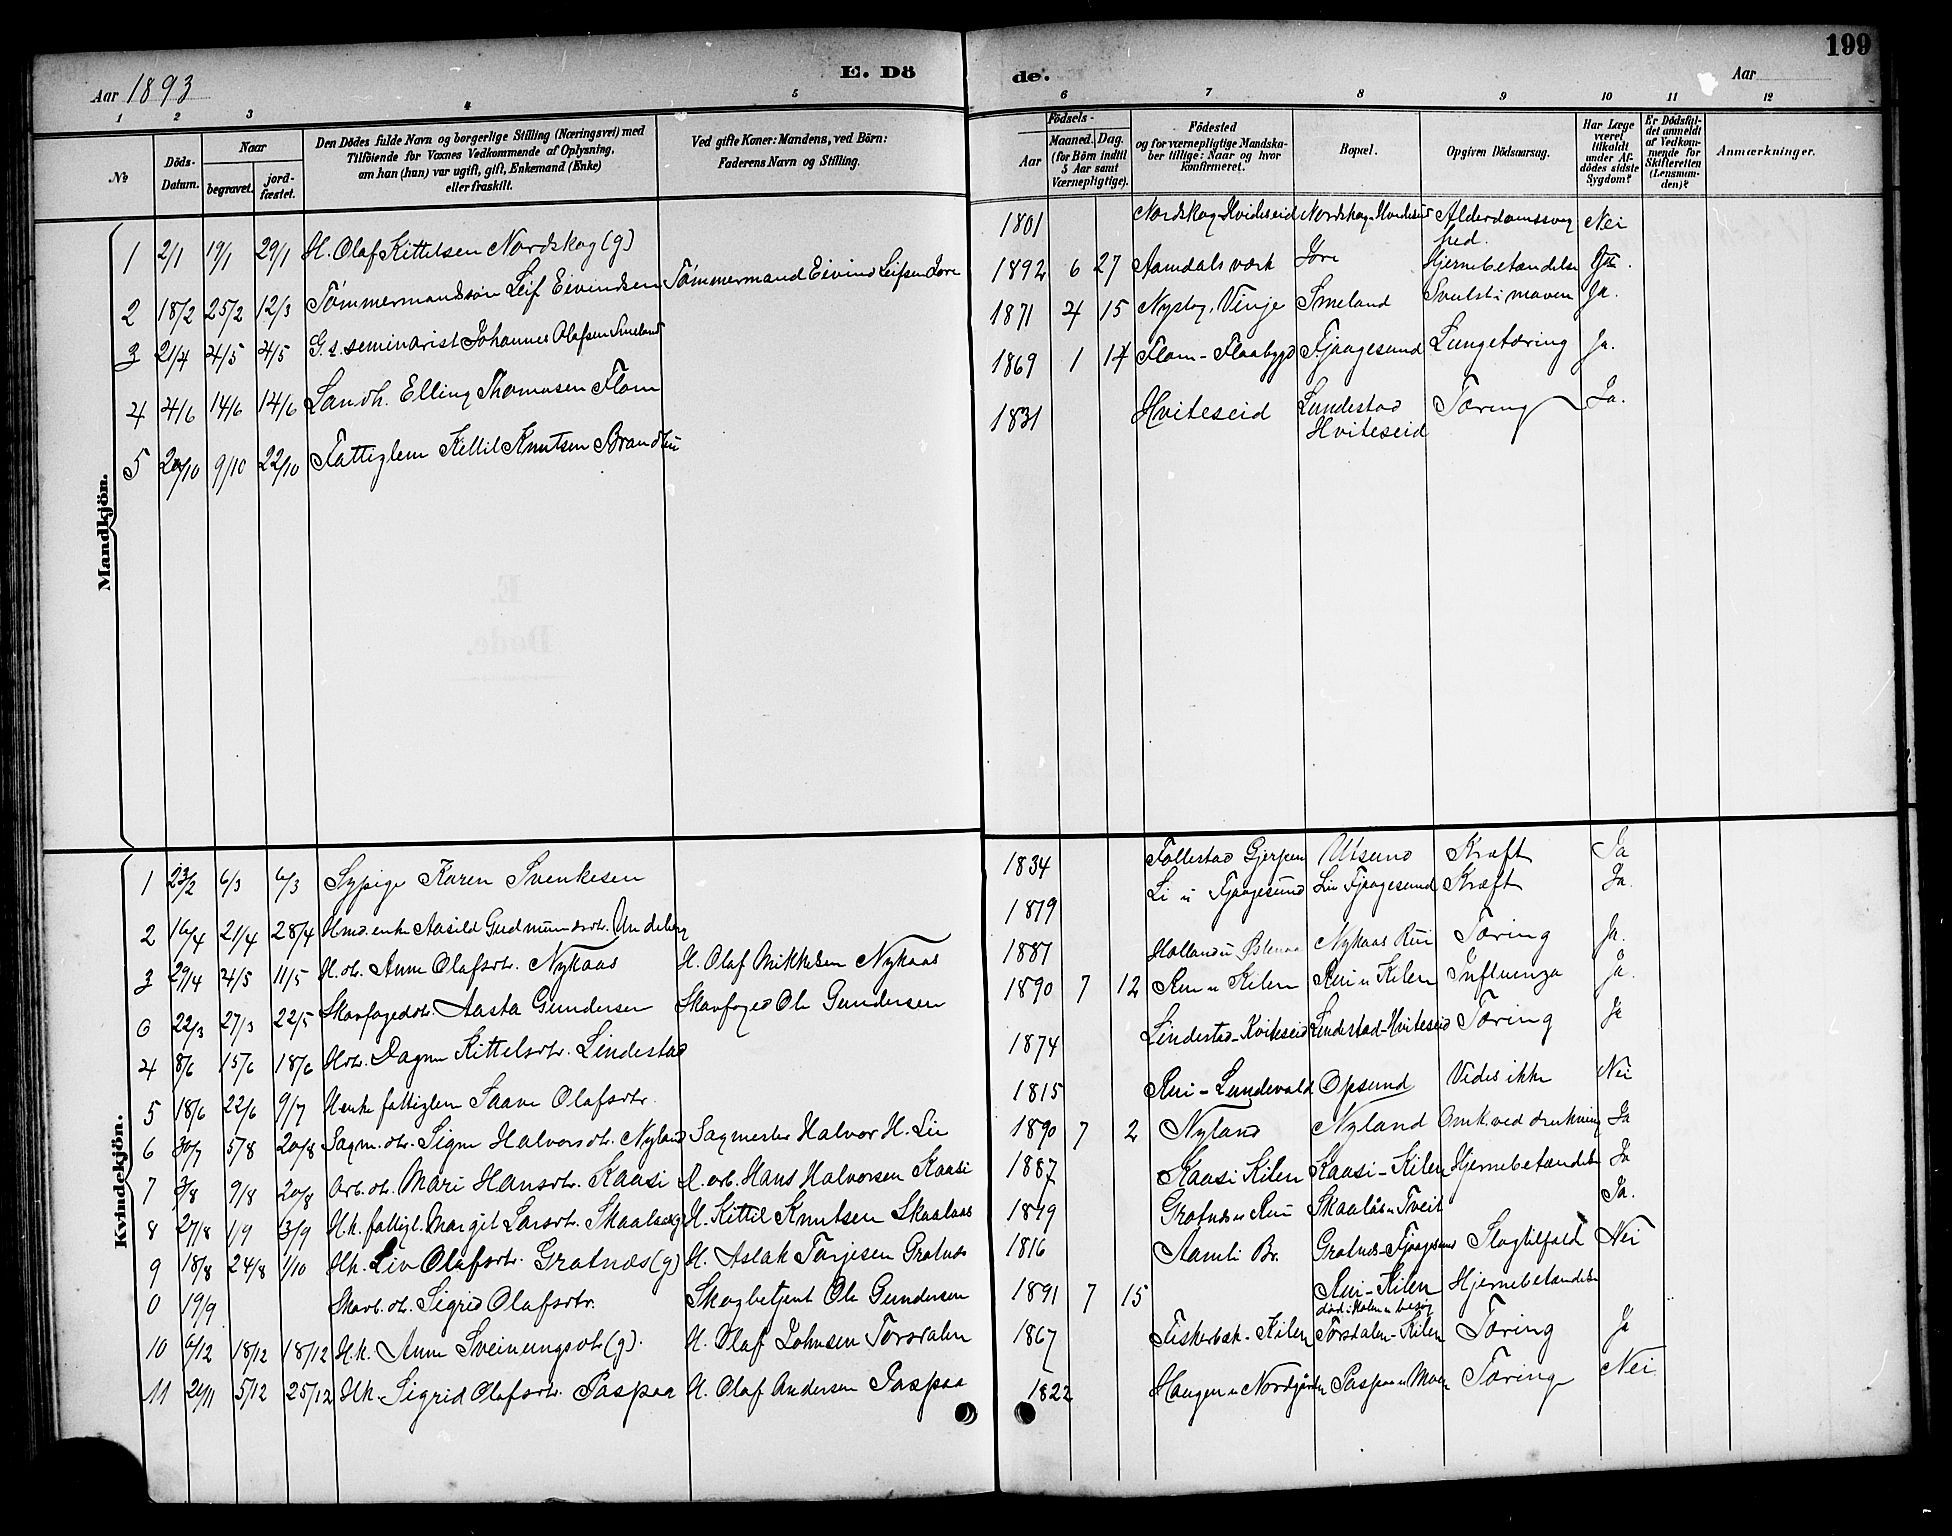 199
E. Döde.
Aar 1893
Aar
1 2 3 4 5 6 7 8 9 10 11 12
No
Döds-Datum.
Naar
begravet.
jord-fæstet.
Den Dödes fulde Navn og borgerlige Stilling (Næringsvei) med
Tilföiende for Voxnes Vedkommende af Oplysning,
om han (hun) var ugift, gift, Enkemand (Enke)
eller fraskilt.
Ved gifte Koner: Mandens, ved Börn:
Faderens Navn og Stilling.
Födsels-
Aar
Maaned. Dag.
(for Börn indtil
5 Aar samt
Værnepligtige).
Födested
og for værnepligtige Mandska-
ber tillige: Naar og hvor
konfirmeret.
Bopæl.
Opgiven Dödsaarsag.
Har Læge
været
tilkaldt
under Af-
dödes sidste
Sygdom?
Er Dödsfal-
det anmeldt
af Vedkom-
mende for
Skifteretten
(Lensman-
den)?
Anmærkninger.
Mandkjön.
1 2/1 19/1 29/1 H. Olaf Kittelsen Nordskog (g) 1801 Nordskog Hvideseid Nordskog Hvideseid Alderdomssvaghed. Nei
2 18/2 25/2 12/3 Tømmermandssøn Leif Eivindsen Tømmermand Eivind Leifsen Jore 1892 6 27 Aamdals værk Jore Hjernebetændelse Ja.
3 21/4 4/5 4/5 G. s. seminarist Johannes Olafsen Smeland 1871 4 15 Nystog, Vinje Smeland Svulst i maven Ja.
4 4/6 14/6 14/6 Landh. Elling Thomasen Flom 1869 1 14 Flom - Flaabygd Fjaagesund Lungetæring Ja.
5 9/10 22/10 Fattiglem Kettil Knutsen 1831 Hviteseid Lundestad Hviteseid Tæring Ja.
Kvindekjön.
1 23/2 6/3 6/3 Sypige Karen Svenkesen 1834 Follestad Gjerpen Utsund Kræft Ja
2 16/4 21/4 28/4 Hmd. enke Aasild Gudmundsdtr. Undeberg 1819 Li i Fjaagesund Lii Fjaagesund Kræft Ja.
3 29/4 4/5 11/5 H. dt. Anne Olafsdtr. Nykaas H. Olaf Mikkelsen Nykaas 1887 Nykaas Rui Tæring Ja.
0 22/3 27/3 22/5 Skovfogeddtr. Aasta Gundersen Skovfoged Ole Gundersen 1890 7 12 Rui i Kilen Rui i Kilen Influenza Ja.
4 8/6 15/6 18/6 Hdtr. Dagne Kittelsdtr. Lindestad 1874 Lindestad - Kviteseid Lindestad - Hviteseid Tæring Ja
5 18/6 22/6 9/7 H enke fattiglem Saave Olafsdtr. 1815 Rui - Lundevald Opsund Vides ikke Nei
6 30/7 5/8 20/8 Sagm. dtr. Signe Halvorsdtr. Nyland Sagmester Halvor H. Lie 1890 7 2 Nyland Nyland Omk. ved drukning Ja
7 3/8 9/8 20/8 Arb. dt. Mari Hansdtr. Kaasi A. arb. Hans Halvorsen Kaasi 1887 Kaasi Kilen Kaasi - Kilen Hjernebetændelse Ja
8 27/8 1/9 3/9 H.k. fattigl. Margit Larsdtr. Skaalaas H. Kittil Knutsen Skaalaas 1819 Grotnæs i Rui Skaalås i Tveit Ja.
9 18/8 24/8 1/10 Hk. Liv Olafsdtr. Grotnæs (g) H. Aslak Tarjesen Grotnæs 1816 Aamli Br. Grotnæs - Fjaagesund Slagtilfald Nei
0 19/9 Skovb. dt. Sigrid Olafsdtr. Skogbetjent Ole Gundersen 1891 7 15 Rui - Kilen Hjernebetændelse
10 6/12 18/12 18/12 H.k. Anne Sveinungsdt (g). H. Olaf Johnsen Torsdalen 1867 Fiskerbæk - Kilen Torsdalen - Kilen Tæring Ja
11 5/12 25/12 Hk. Sigrid Olafsdtr. Paspaa H. Olaf Andersen Paspaa 1822 Haugen i Nordgården Paspaa i Moen Tæring Nei